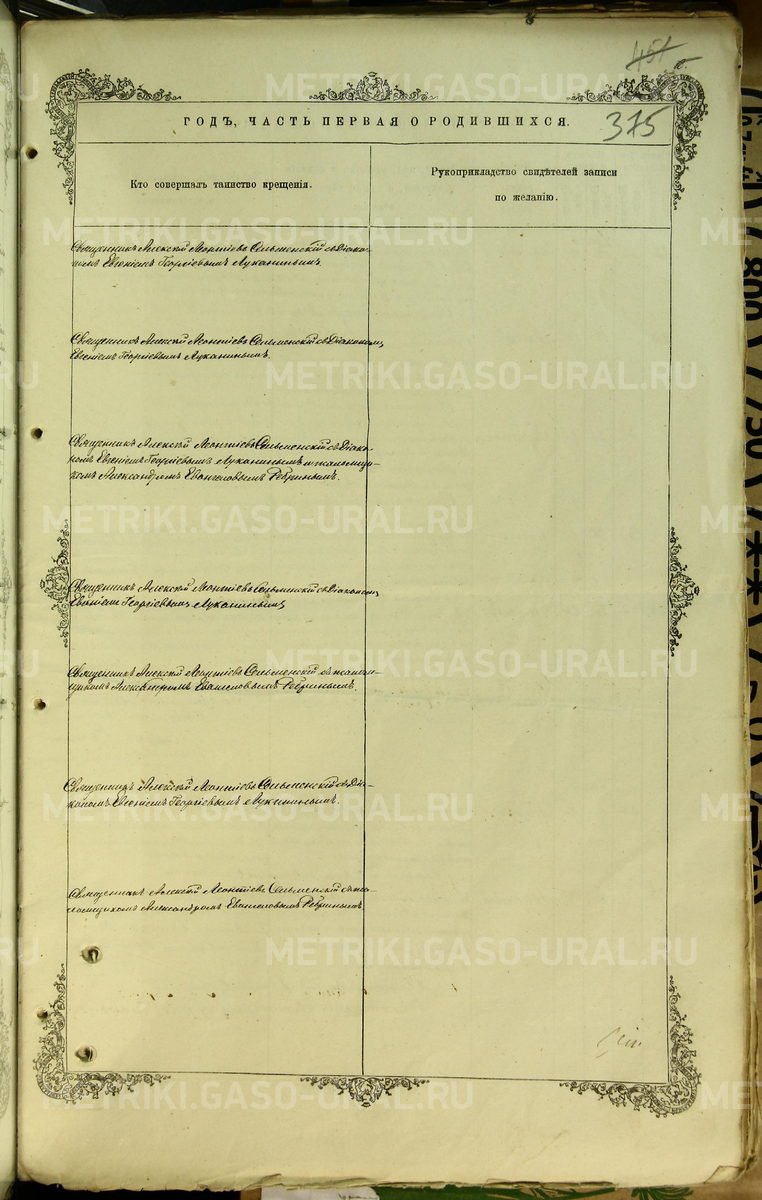 451
375
ГОДЪ, ЧАСТЬ ПЕРВАЯ О РОДИВШИХСЯ.
Кто совершалъ таинство крещенія.
Рукоприкладство свидѣтелей записи
по желанію.
Священникъ Алексѣй Леонтіевъ Сельменскій съ Діако-
номъ Евгеніемъ Георгіевымъ Луканинымъ.
Священникъ Алексѣй Леонтіевъ Сельменскій съ Діакономъ
Евгеніемъ Георгіевымъ Луканинымъ.
Священникъ Алексѣй Леонтіевъ Сельменскій съ Діако-
номъ Евгеніемъ Георгіевымъ Луканинымъ и псаломщи-
комъ Александромъ
Священникъ Алексѣй Леонтіевъ Сельменскій съ Діакономъ
Евгеніемъ Георгіевымъ Луканинымъ
Священникъ Алексѣй Леонтіевъ Сельменскій съ псалом-
щикомъ Александромъ
Священникъ Алексѣй Леонтіевъ Сельменскій съ Діа-
кономъ Евгеніемъ Георгіевымъ Луканинымъ.
Священникъ Алексѣй Леонтіевъ Сельменскій съ пса-
ломщикомъ Александромъ
METRIKI.GASO-URAL.RU